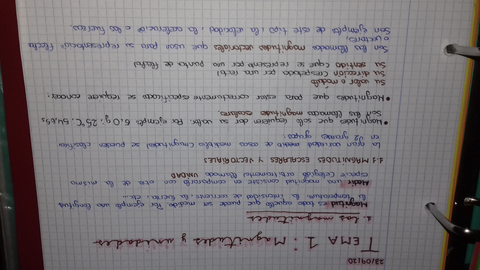 23/09/20
TEMA 1: Magnitudes y unidades
1. Las magnitudes
Magnitud es todo aquello que puede ser medido. Por ejemplo una longitud
la temperatura, la intensidad de corriente, la fuerza, etc.
Medir una magnitud consiste en compararla con otra de la misma
especie (elegida arbitrariamente) llamada UNIDAD
1.1 MAGNITUDES ESCALARES Y VECTORIALES
la gran variedad de cosas medibles (magnitudes) se pueden clasificar
en 2 grandes grupos:
• Magnitudes que solo requieren dar su valor. Por ejemplo 6,01g, 25°C,
Son las llamadas magnitudes escalares
• Magnitudes que para estar correctamente especificadas se requiere conocer:
Su valor o módulo
Su dirección (representada por una recta)
Su sentido (que se representa por una punta de flecha)
Son las llamadas magnitudes vectoriales que usan para su representación flechas
o vectores.
Son ejemplos de este tipo: la velocidad, la aceleración o las fuerzas.